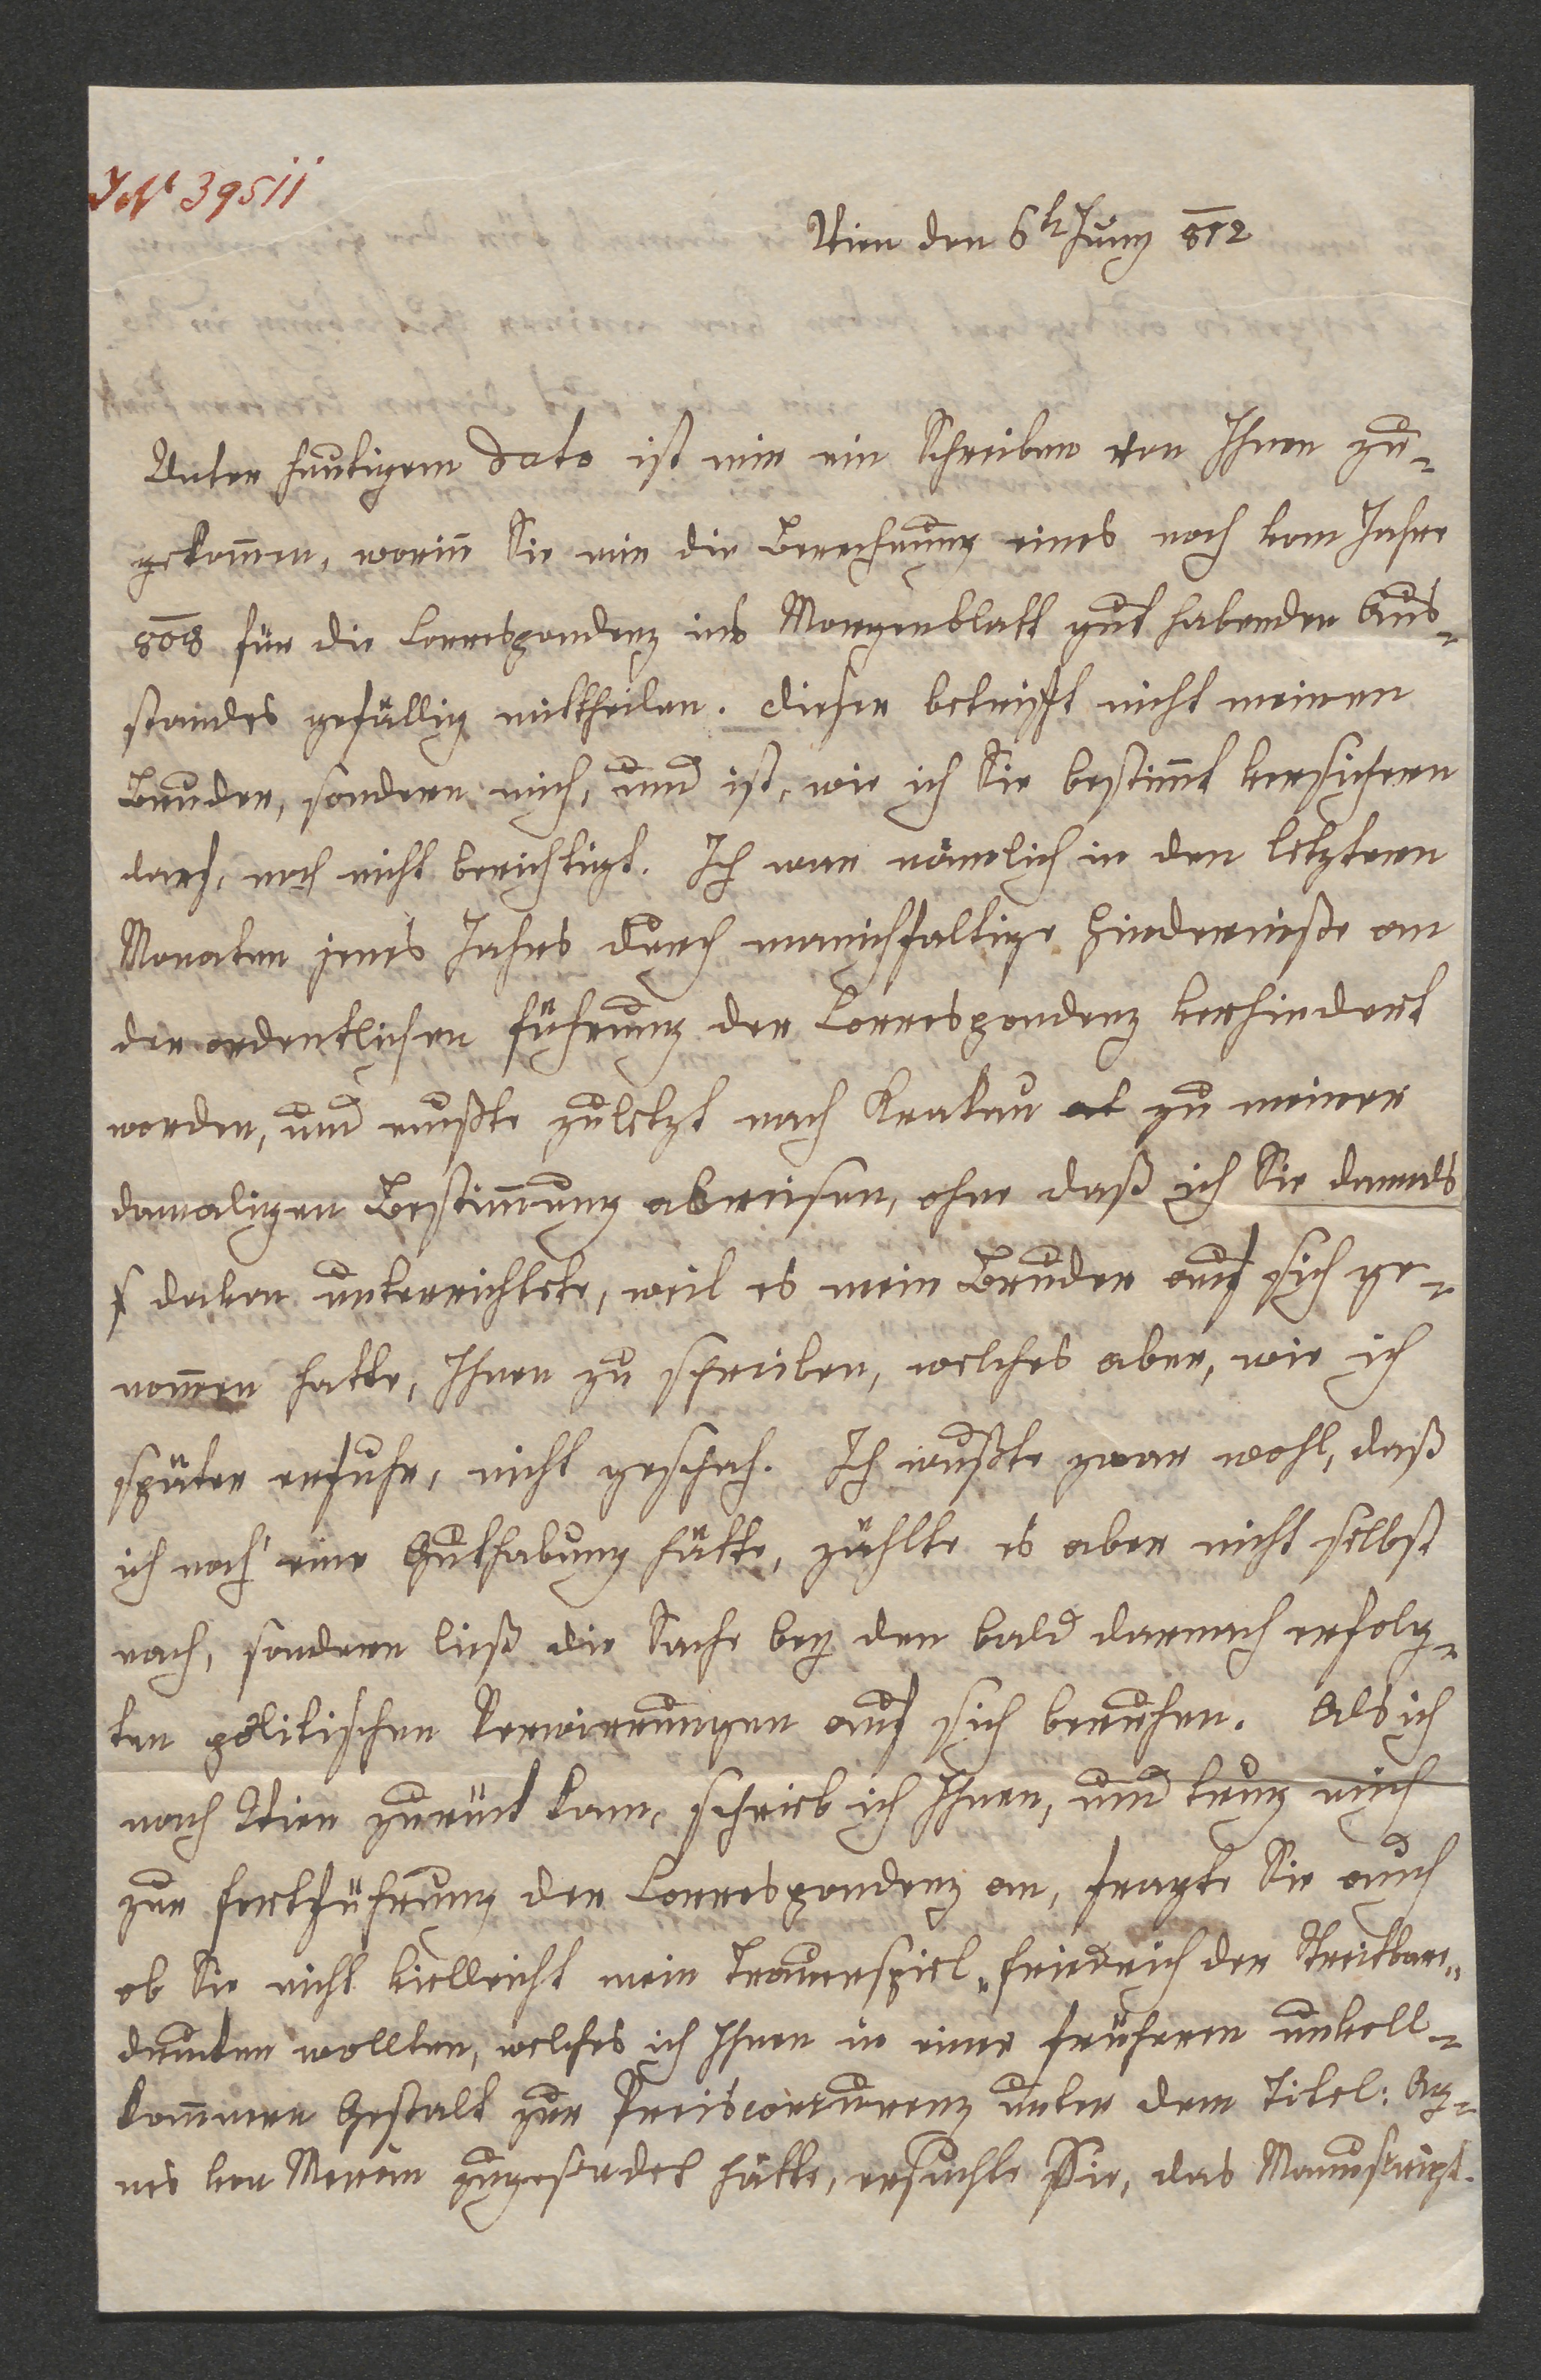 JN 39511
Wien den 6t Juny 812
Unter heutigem Dato ist mir ein Schreiben von Ihnen zu-
gekom̅en, worin̅ Sie mir die Berechnung eines noch vom Jahre
808 für die Correspondenz ins Morgenblatt gut habenden Aus-
standes gefällig mittheilen. Dieser betrifft nicht meinen
Bruder, sondern mich, und ist, wie ich Sie bestim̅t versichern
darf, noch nicht berichtigt. Ich war nämlich in den letztern
Monaten jenes Jahres durch manichfaltige Hinderniße an
der ordentlichen Führung der Correspondenz verhindert
worden, und mußte zuletzt nach Krakau zu meiner
damaligen Bestim̅ung abreisen, ohne daß ich Sie damals
davon unterrichtete, weil es mein Bruder auf sich ge-
nom̅en hatte, Ihnen zu schreiben, welches aber, wie ich
später erfuhr, nicht geschah. Ich wußte zwar wohl, daß
ich noch eine Guthabung hätte, zählte es aber nicht selbst
nach, sondern ließ die Sache bey den bald darnach erfolg-
ten politischen Verwirrungen auf sich beruhen. Als ich
nach Wien zurück kam, schrieb ich Ihnen, und trug mich
zur Fortführung der Correspondenz an, fragte Sie auch
ob Sie nicht vielleicht mein Trauerspiel „Friedrich der Streitbare„
drucken wollten, welches ich Ihnen in einer früheren unvoll-
kom̅nern Gestalt zur Preisconcurrenz unter dem Titel: Ag-
nes von Meran zugesendet hatte, ersuchte Sie, das Manuscript